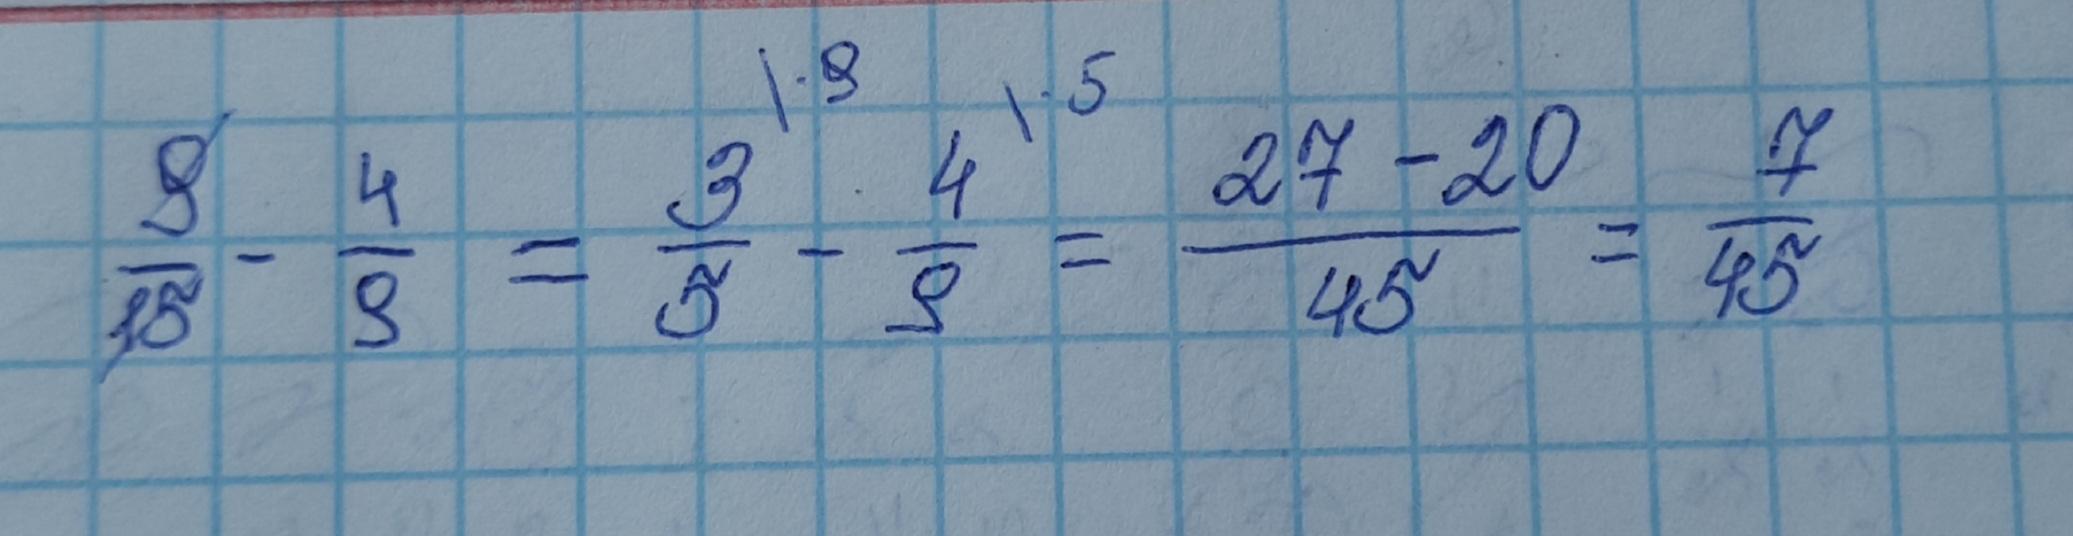 9/15 - 4/9 = 3/5 |·9 - 4/9 |·5 = 27-20/45 = 7/45